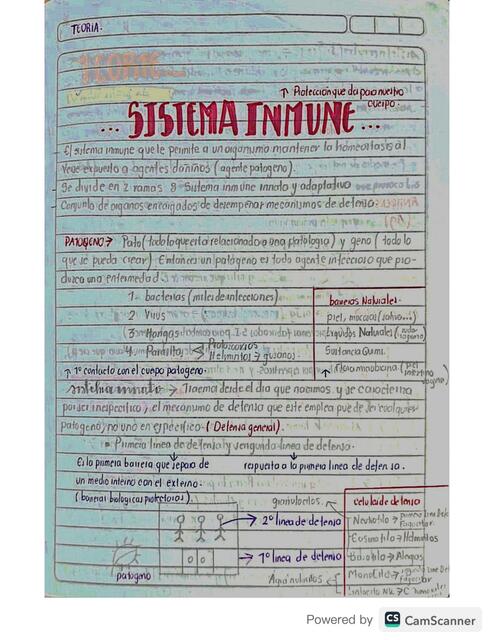 TEORIA.
↑ Protección que da para nuestro cuerpo.
... SISTEMA INMUNE ...
El sistema inmune que le permite a un organismo mantener la homeostasis al
verse expuesto a agentes dañinos (agente patogeno).
Se divide en 2 ramas 8 Sistema inmune innato y adaptativo
Conjunto de organos encargados de desempeñar mecanismos de defensa.
PATOGENO → Pato (todo lo que esta relacionado a una patologia) y geno (todo lo
que se pueda crear). Entonces un patogeno es todo agente infeccioso que pro-
duzca una enfermedad.
1- bacterias (miles de infecciones)
2 Virus
3 Hongos
4 Parasitos < Protozoarios
Helmintos → gusanos
barreras Naturales.
piel, mucosas (saliva...)
Liquidos Naturales
Sustancia Quimi.
Flora microbiana (piel intestino vagina)
↑ 1º contacto con el cuerpo patogeno.
→ Traema desde el dia que nacimos y se caracteriza
por ser inespecifico, el mecanismo de defensa que este emplea puede ser cualquier
patogeno, no uno en especifico. (Defensa general).
Primera linea de defensa y segunda linea de defensa.
Es la primera barrera que separa de
un medio interno con el externo.
(barreras biologicas protectoras).
respuesta a la primera linea de defensa.
granulocitos
2º linea de defensa
1º linea de defensa
patogeno
Agranulocitos
celulas de defensa
Neutrofilo →
Eosinofilo → Helmintos
Basofilo → Alergias
Monocito →